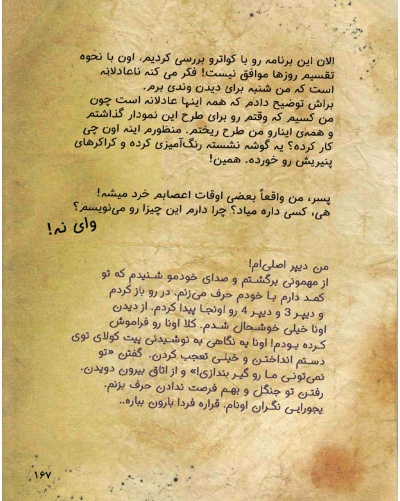 الان این برنامه رو با کواترو بررسی کردیم. اون با نحوه
تقسیم روزها موافق نیست! فکر می کنه ناعادلانه
است که من شنبه برای دیدن وندی برم.
براش توضیح دادم که همه اینها عادلانه است چون
من کسیم که وقتم رو برای طرح این نمودار گذاشتم
و همه‌ی اینارو من طرح ریختم. منظورم اینه اون چی
کار کرده؟ یه گوشه نشسته رنگ‌آمیزی کرده و کراکرهای
پنیریش رو خورده. همین!
پسر، من واقعاً بعضی اوقات اعصابم خرد میشه!
هی، کسی داره میاد؟ چرا دارم این چیزا رو می‌نویسم؟
وای نه!
من دیپر اصلی‌ام!
از مهمونی برگشتم و صدای خودمو شنیدم که تو
کمد دارم با خودم حرف می‌زنم. در رو باز کردم
و دیپر 3 و دیپر 4 رو اونجا پیدا کردم. از دیدن
اونا خیلی خوشحال شدم. کلا اونا رو فراموش
کرده بودم! اونا یه نگاهی به نوشیدنی پیت کولای توی
دستم انداختن و خیلی تعجب کردن. گفتن «تو
نمی‌تونی ما رو گیر بندازی!» و از اتاق بیرون دویدن.
رفتن تو جنگل و بهم فرصت ندادن حرف بزنم.
یجورایی نگران اونام. قراره فردا بارون بباره..
۱۶۷